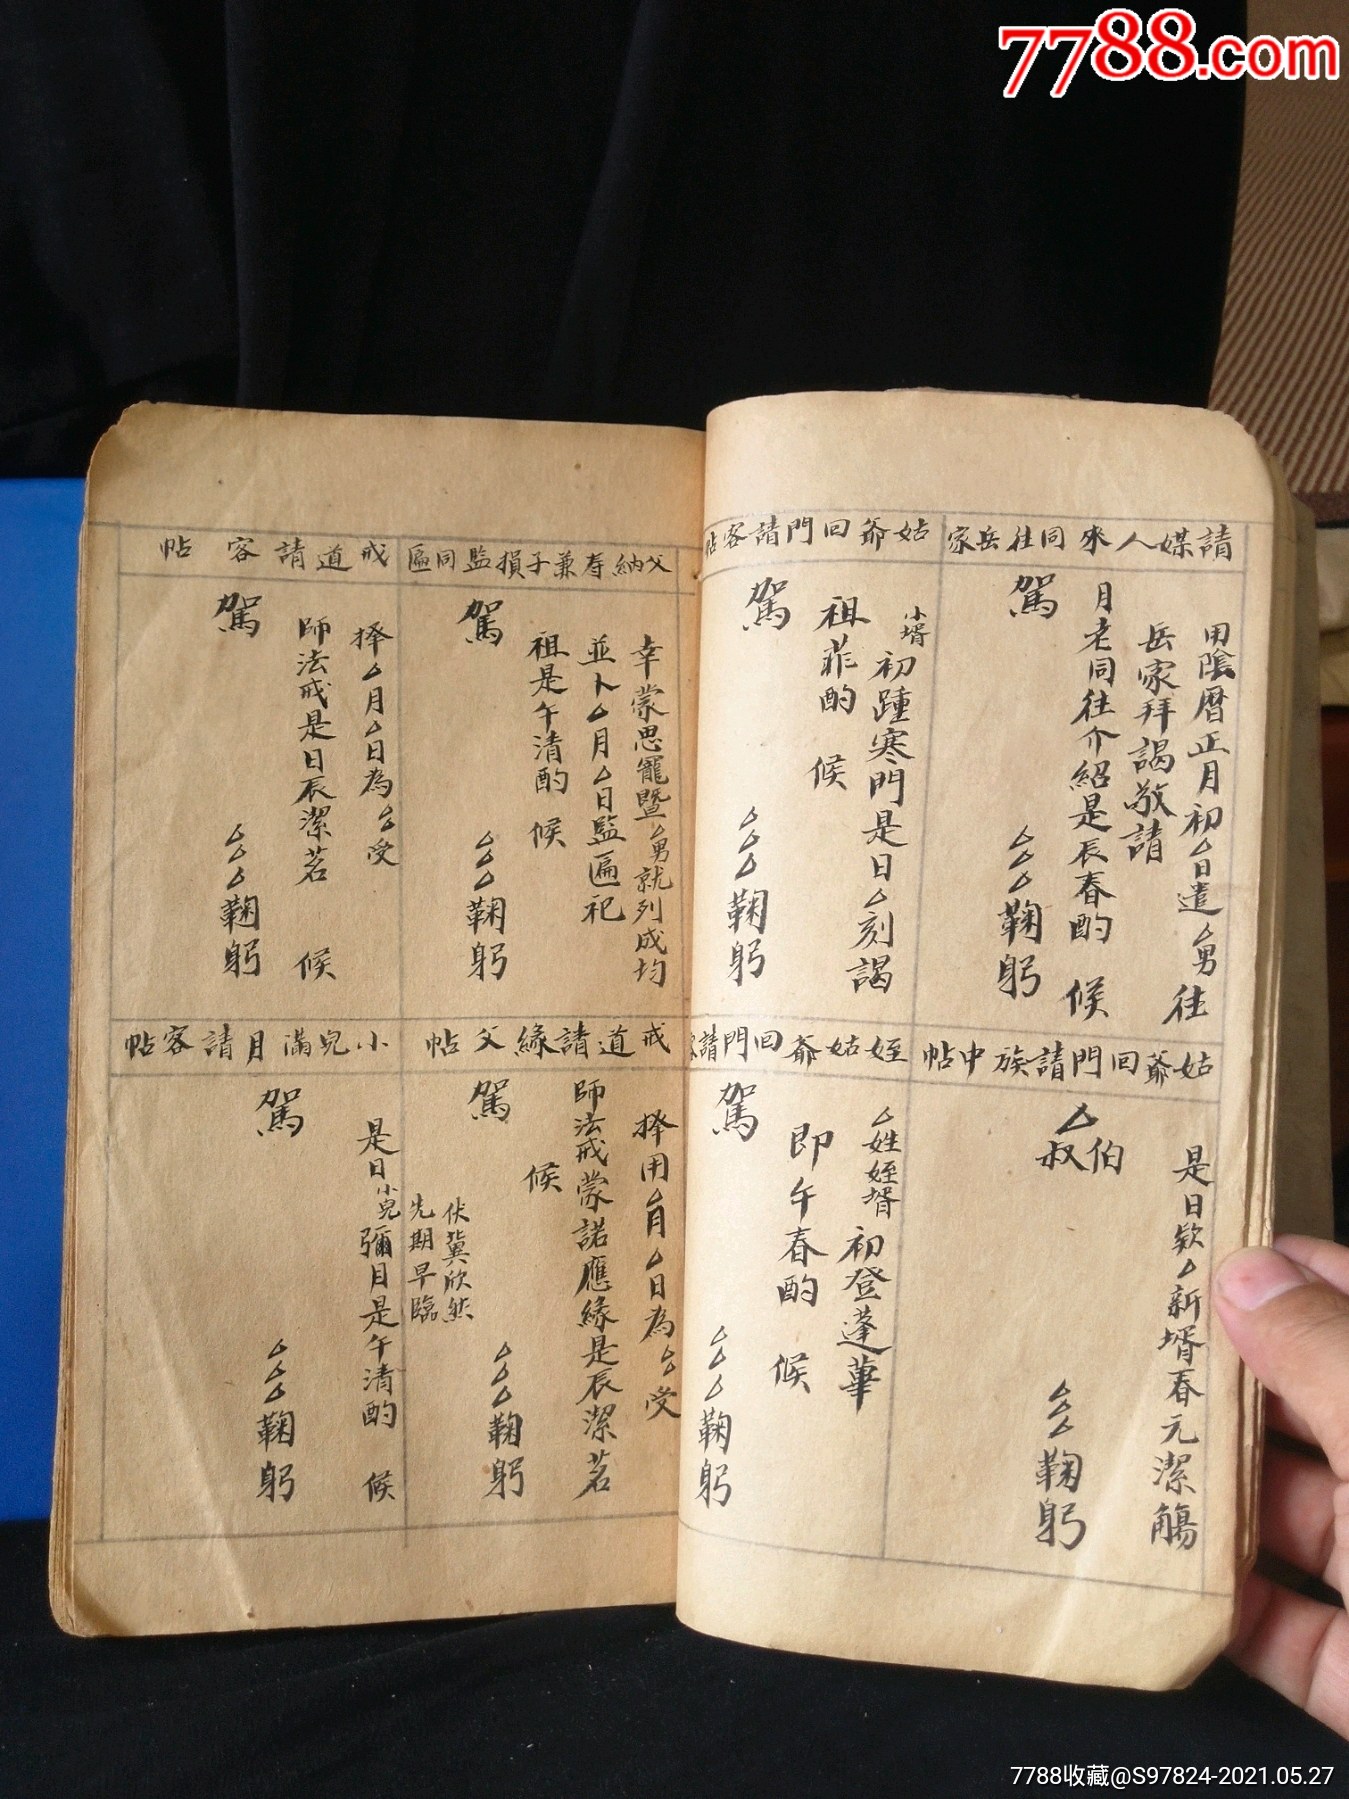 7788.com
請媒人來同往岳家
用陰曆正月初△日遣△男往
岳家拜謁敬請
月老同往介紹是辰春酌 候
駕
△△△鞠躬
姑爺回門請客帖
小壻初踵寒門是日△刻謁
祖菲酌 候
駕
△△△鞠躬
姑爺回門請族中帖
是日欵△新壻春元潔觴
△伯叔
△△△鞠躬
姪姑爺回門請客
△姓姪壻初登蓬蓽
即午春酌 候
駕
△△△鞠躬
父納寿兼子損監同匾
幸蒙思寵暨△男就列成均
並卜△月△日監匾祀
祖是午清酌 候
駕
△△△鞠躬
戒道請客帖
擇△月△日為△△受
師法戒是日辰潔茗 候
駕
△△△鞠躬
戒道請緣父帖
擇用△月△日為△△受
師法戒蒙諾應緣是辰潔茗
候
駕
伏冀欣然
先期早臨
△△△鞠躬
小兒滿月請客帖
是日小兒彌月是午清酌 候
駕
△△△鞠躬
7788收藏@S97824-2021.05.27